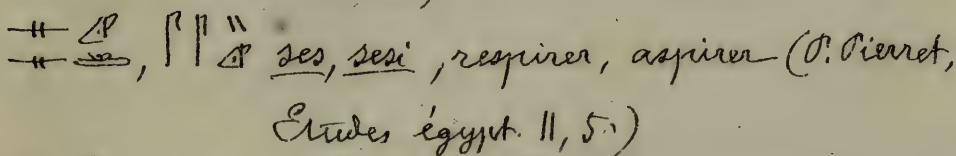 𓊃𓊃, 𓋴𓋴𓏭 ses, sesi, respirer, aspirer (P. Pierret,
Etudes égypt. II, 5.)